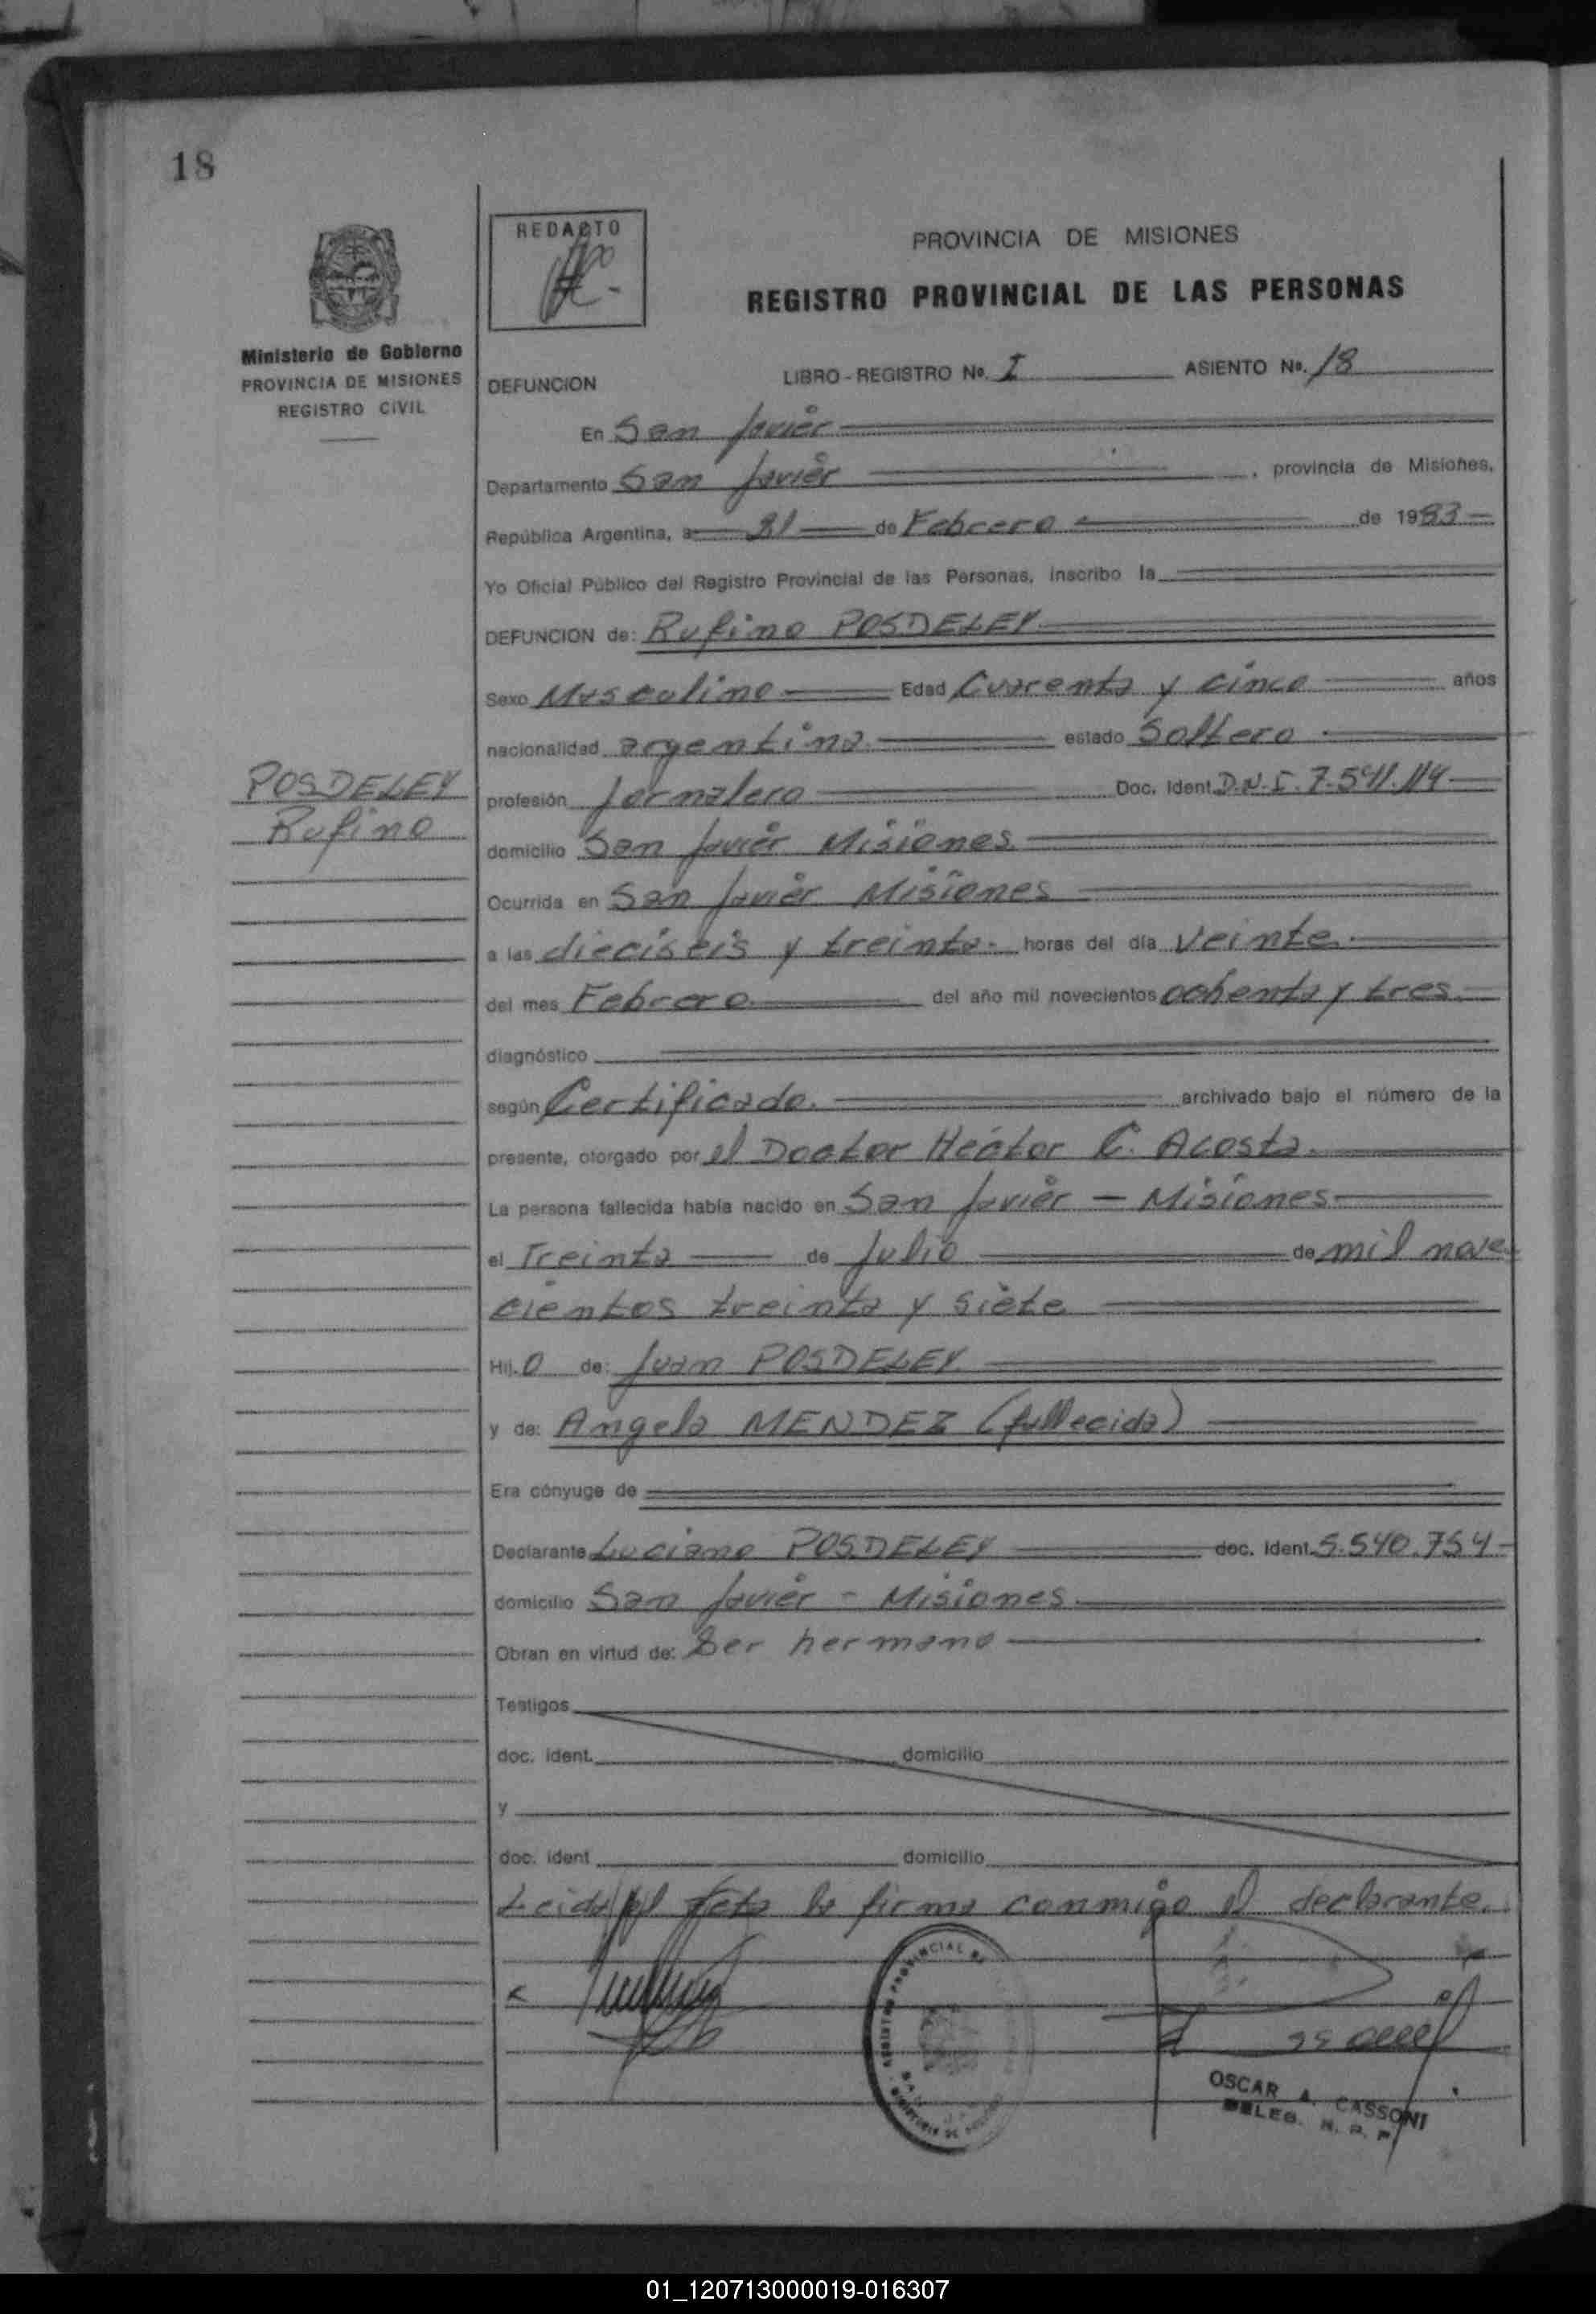 18
REDACTO
PROVINCIA DE MISIONES
REGISTRO PROVINCIAL DE LAS PERSONAS
Ministerio de Gobierno
PROVINCIA DE MISIONES
REGISTRO CIVIL
DEFUNCION LIBRO - REGISTRO No. I ASIENTO No. 18
En San Javier
Departamento San Javier , provincia de Misiones,
República Argentina, a 21 de Febrero de 1983
Yo Oficial Público del Registro Provincial de las Personas, inscribo la
DEFUNCION de: Rufino POSDELEY
Sexo Masculino Edad Cuarenta y cinco años
nacionalidad argentina estado Soltero
POSDELEY
Rufino
profesión Jornalero Doc. Ident. D.N.I. 7.541.114
domicilio San Javier Misiones
Ocurrida en San Javier Misiones
a las dieciseis y treinta horas del día veinte
del mes Febrero del año mil novecientos ochenta y tres
diagnóstico
según Certificado. archivado bajo el número de la
presente, otorgado por el Doctor Héctor C. Acosta
La persona fallecida había nacido en San Javier - Misiones
el Treinta de Julio de mil nove
cientos treinta y siete
Hij.o de: Juan POSDELEY
y de: Angela MENDEZ (fallecida)
Era cónyuge de
Declarante Luciano POSDELEY doc. ident. 5.540.754
domicilio San Javier - Misiones
Obran en virtud de: Ser hermano
Testigos
doc. ident. domicilio
y
doc. ident domicilio
Leida el acta la firma conmigo el declarante.
OSCAR A. CASSONI
DELEG. R. P. P.
01_120713000019-016307